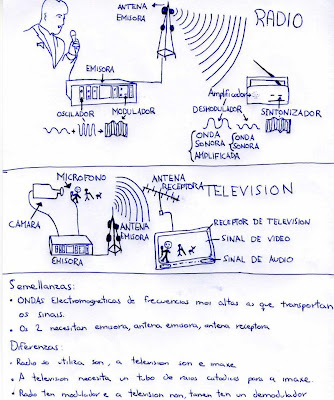 ANTENA
EMISORA
RADIO
EMISORA
Amplificador
OSCILADOR
MODULADOR
DESMODULADOR
SINTONIZADOR
ONDA
SONORA
AMPLIFICADA
ONDA
SONORA
MICROFONO
ANTENA
RECEPTORA
TELEVISION
CAMARA
EMISORA
ANTENA
EMISORA
RECEPTOR DE TELEVISION
SINAL DE VIDEO
SINAL DE AUDIO
Semellanzas:
• ONDAS Electromagneticas de frecuencias moi altas as que transportan
os sinais.
• Os 2 necesitan emisora, antena emisora, antena receptora
Diferenzas:
• Radio so utiliza son, a television son e imaxe
• A television necesita un tubo de raios catodicos para a imaxe.
• Radio ten modulador e a television non, tamen ten un demodulador